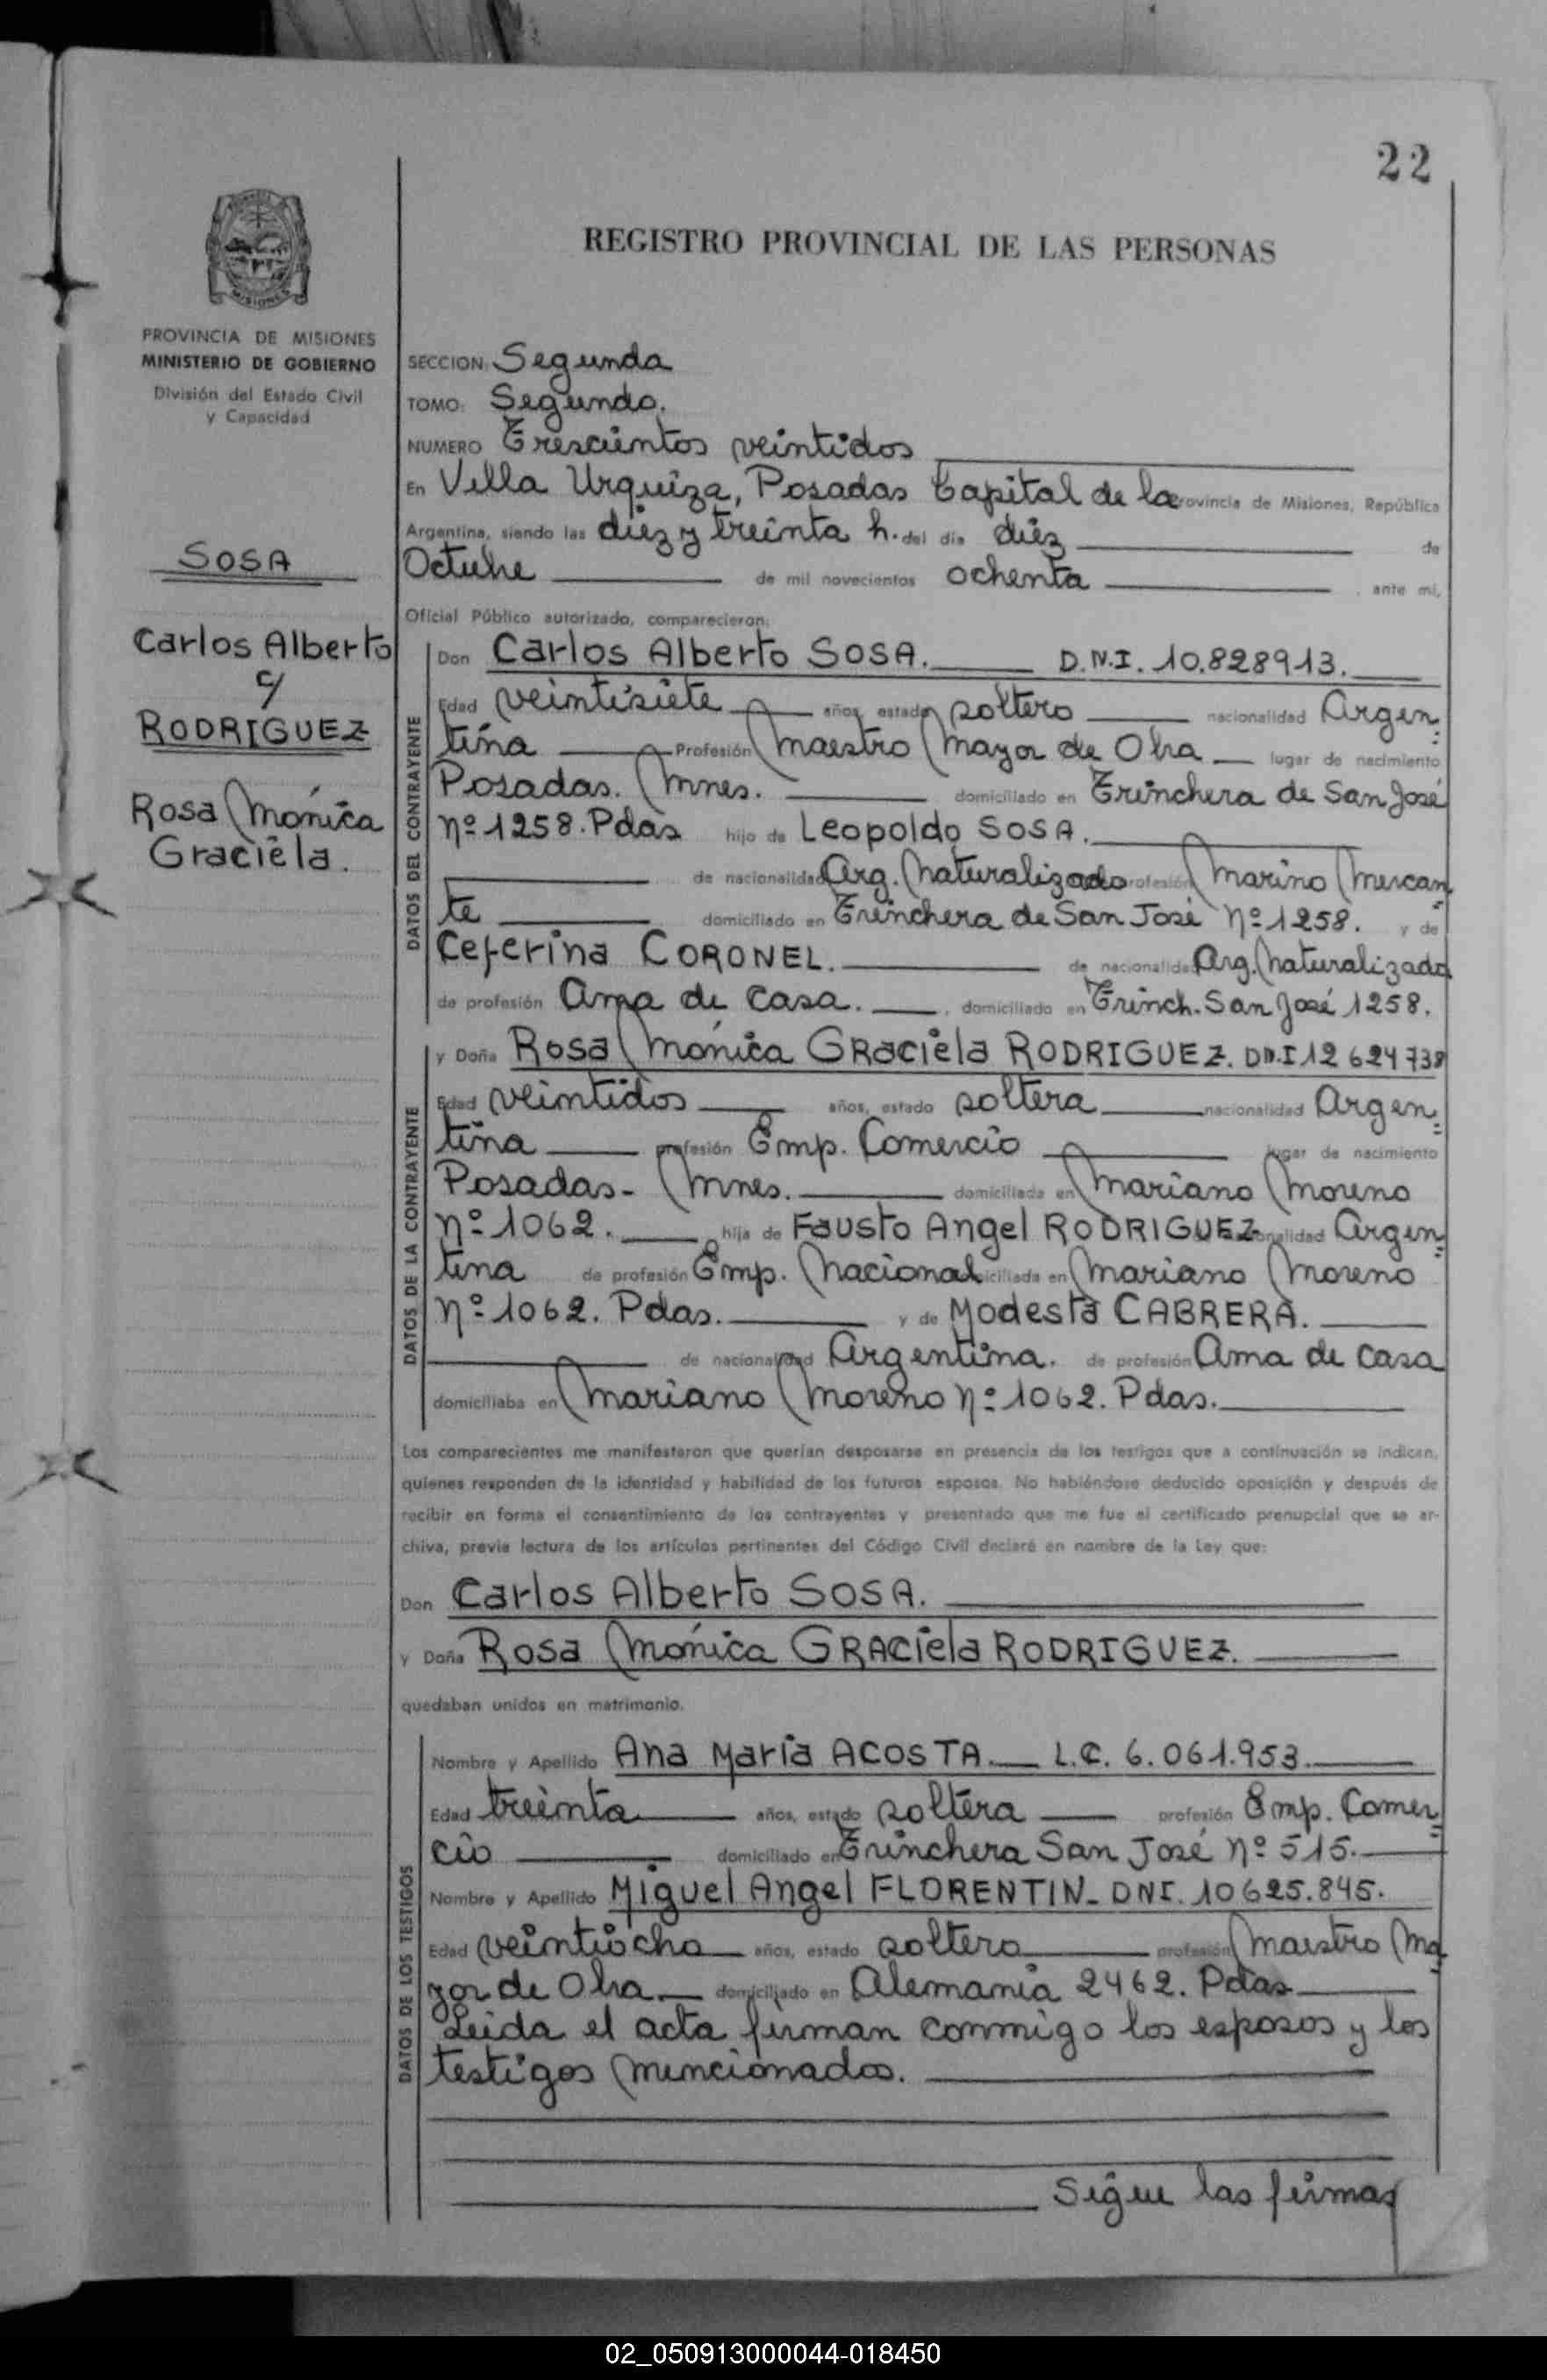 22
REGISTRO PROVINCIAL DE LAS PERSONAS
MISIONES
PROVINCIA DE MISIONES
MINISTERIO DE GOBIERNO
División del Estado Civil
y Capacidad
SOSA
Carlos Alberto
c/
RODRIGUEZ
Rosa Mónica
Graciela.
SECCION: Segunda
TOMO: Segundo.
NUMERO Trescientos veintidos
En Villa Urquiza, Posadas Capital de la Provincia de Misiones, República
Argentina, siendo las diez y treinta h. del día diez de
Octubre de mil novecientos ochenta ante mí,
Oficial Público autorizado, comparecieron:
DATOS DEL CONTRAYENTE
Don Carlos Alberto SOSA. D.N.I. 10.828913.
Edad veintisiete años, estado soltero nacionalidad Argen
tina Profesión Maestro Mayor de Obra lugar de nacimiento
Posadas. Mnes. domiciliado en Trinchera de San José
Nº 1258. Pdas hijo de Leopoldo SOSA.
de nacionalidad Arg. Naturalizado profesión Marino Mercan
te domiciliado en Trinchera de San José Nº 1258. y de
Ceferina CORONEL. de nacionalidad Arg. Naturalizada
de profesión Ama de casa. domiciliado en Trinch. San José 1258.
DATOS DE LA CONTRAYENTE
y Doña Rosa Mónica GRaciela RODRIGUEZ. DN.I 12 624738
Edad veintidos años, estado soltera nacionalidad Argen
tina profesión Emp. Comercio lugar de nacimiento
Posadas- Mnes. domiciliada en Mariano Moreno
Nº 1062. hija de Fausto Angel RODRIGUEZ nacionalidad Argen
tina de profesión Emp. Nacional domiciliada en Mariano Moreno
Nº 1062. Pdas. y de Modesta CABRERA.
de nacionalidad Argentina. de profesión Ama de casa
domiciliaba en Mariano Moreno Nº 1062. Pdas.
Los comparecientes me manifestaron que querían desposarse en presencia de los testigos que a continuación se indican,
quienes responden de la identidad y habilidad de los futuros esposos. No habiéndose deducido oposición y después de
recibir en forma el consentimiento de los contrayentes y presentado que me fue el certificado prenupcial que se ar-
chiva, previa lectura de los artículos pertinentes del Código Civil declaré en nombre de la Ley que:
Don Carlos Alberto SOSA.
y Doña Rosa Mónica GRACiela RODRIGUEZ.
quedaban unidos en matrimonio.
DATOS DE LOS TESTIGOS
Nombre y Apellido Ana María ACOSTA. L.C. 6.061.953.
Edad treinta años, estado soltera profesión Emp. Comer
cio domiciliado en Trinchera San José Nº 515.
Nombre y Apellido Miguel Angel FLORENTIN- DNI. 10625.845.
Edad veintiocho años, estado soltero profesión Maestro Ma
yor de Obra domiciliado en Alemania 2462. Pdas
Leida el acta firman conmigo los esposos y los
testigos mencionados.
Sigue las firmas
02_050913000044-018450